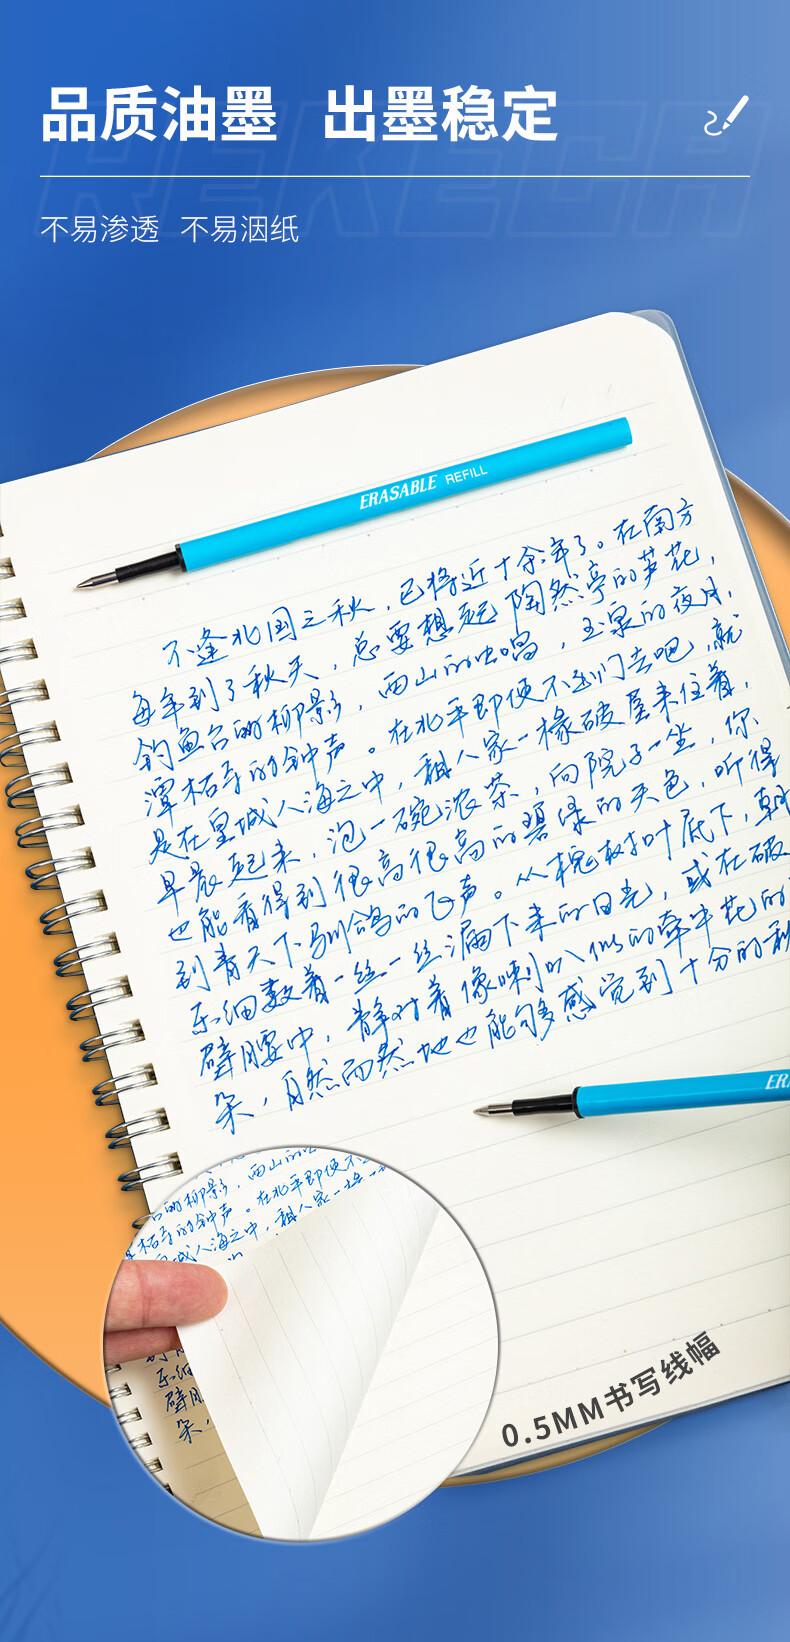 品质油墨 出墨稳定
不易渗透 不易洇纸
ERASABLE REFILL
不逢北国之秋，已将近十余年了。在南方
每年到了秋天，总要想起陶然亭的芦花，
钓鱼台的柳影，西山的虫唱，玉泉的夜月，
潭柘寺的钟声。在北平即便不出门去吧，就
是在皇城人海之中，租人家一椽破屋来住着，
早晨起来，泡一碗浓茶，向院子一坐，你
也能看得到很高很高的碧绿的天色，听得
到青天下驯鸽的飞声。从槐树叶底下，朝
东细数着一丝一丝漏下来的日光，或在破
壁腰中，静对着像喇叭似的牵牛花的
朵，自然而然地也能够感觉到十分的秋
ER
0.5MM书写线幅